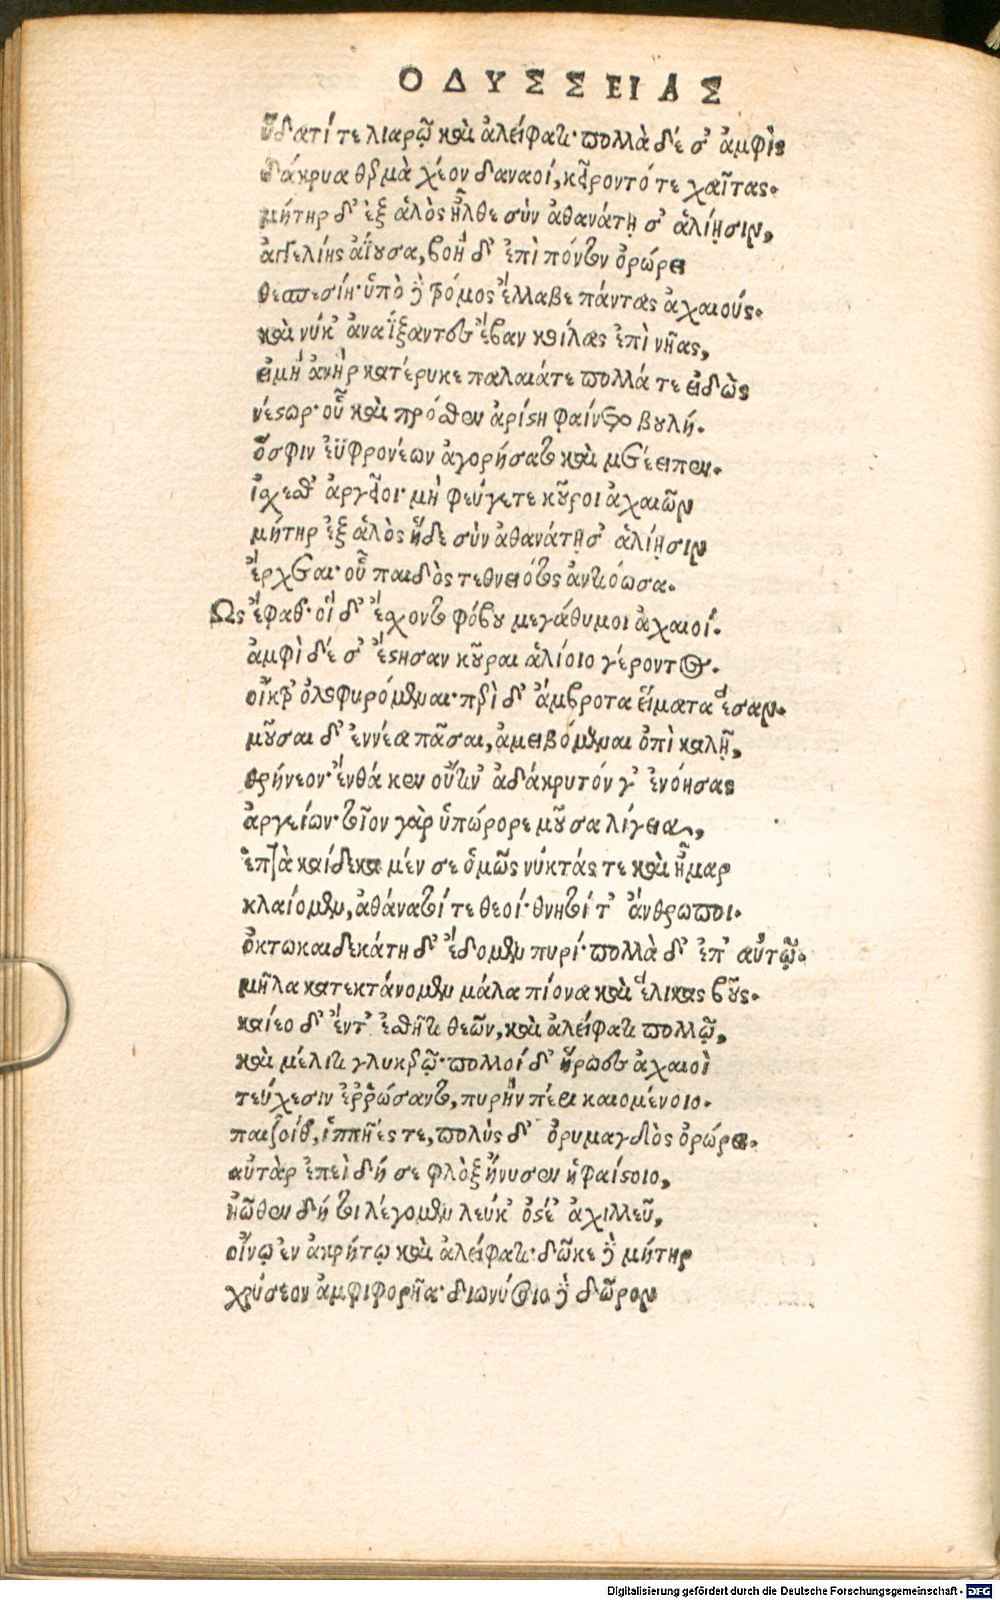 ΟΔΥΣΣΕΙΑΣ
ὕδατί τε λιαρῷ καὶ ἀλείφατι· πολλὰ δέ σ' ἀμφὶς
δάκρυα θερμὰ χέον δαναοί, κείροντό τε χαίτας.
μήτηρ δ' ἐξ ἁλὸς ἦλθε σὺν ἀθανάτῃσ' ἁλίῃσιν,
ἀγγελίης ἀΐουσα, βοὴ δ' ἐπὶ πόντον ὀρώρει
θεσπεσίη· ὑπὸ δὲ τρόμος ἔλλαβε πάντας ἀχαιούς.
καὶ νύκ' ἀναΐξαντες ἔβαν κοίλας ἐπὶ νῆας,
εἰ μὴ ἀνὴρ κατέρυκε παλαιά τε πολλά τε εἰδὼς
νέστωρ· οὗ καὶ πρόσθεν ἀρίστη φαίνετο βουλή.
ὅ σφιν ἐϋφρονέων ἀγορήσατο καὶ μετέειπεν.
ἴσχεσθ' ἀργεῖοι· μὴ φεύγετε κοῦροι ἀχαιῶν
μήτηρ ἐξ ἁλὸς ἥδε σὺν ἀθανάτῃσ' ἁλίῃσιν
ἔρχεται· οὗ παιδὸς τεθνειότος ἀντιόωσα.
Ὣς ἔφαθ'· οἱ δ' ἔχοντο φόβου μεγάθυμοι ἀχαιοί.
ἀμφὶ δέ σ' ἔστησαν κοῦραι ἁλίοιο γέροντος.
οἴκτρ' ὀλοφυρόμεναι· περὶ δ' ἄμβροτα εἵματα ἕσαν.
μοῦσαι δ' ἐννέα πᾶσαι, ἀμειβόμεναι ὀπὶ καλῇ,
θρήνεον· ἔνθά κεν οὔτιν' ἀδάκρυτόν γ' ἐνόησας
ἀργείων· τοῖον γὰρ ὑπώρορε μοῦσα λίγεια,
ἑπτὰ καίδεκα μέν σε ὁμῶς νύκτάς τε καὶ ἦμαρ
κλαίομεν, ἀθάνατοί τε θεοί· θνητοί τ' ἄνθρωποι.
ὀκτωκαιδεκάτη δ' ἔδομεν πυρί· πολλὰ δ' ἐπ' αὐτῷ.
μῆλα κατεκτάνομεν μάλα πίονα καὶ ἕλικας βοῦς.
καίεο δ' ἔντ' ἐσθῆτι θεῶν, καὶ ἀλείφατι πολλῷ,
καὶ μέλιτι γλυκερῷ· πολλοί δ' ἥρωες ἀχαιοὶ
τεύχεσιν ἐῤῥώσαντο, πυρὴν πέρι καιομένοιο.
πεζοίθ', ἱππῆές τε, πολὺς δ' ὀρυμαγδὸς ὀρώρει.
αὐτὰρ ἐπεὶ δή σε φλὸξ ἤνυσεν ἡφαίστοιο,
ἠῶθεν δή τοι λέγομεν λεύκ' ὀστέ' ἀχιλλεῦ,
οἴνῳ ἐν ἀκρήτῳ καὶ ἀλείφατι· δῶκε δὲ μήτηρ
χρύσεον ἀμφιφορῆα· διωνύσοιο δὲ δῶρον
Digitalisierung gefördert durch die Deutsche Forschungsgemeinschaft - DFG